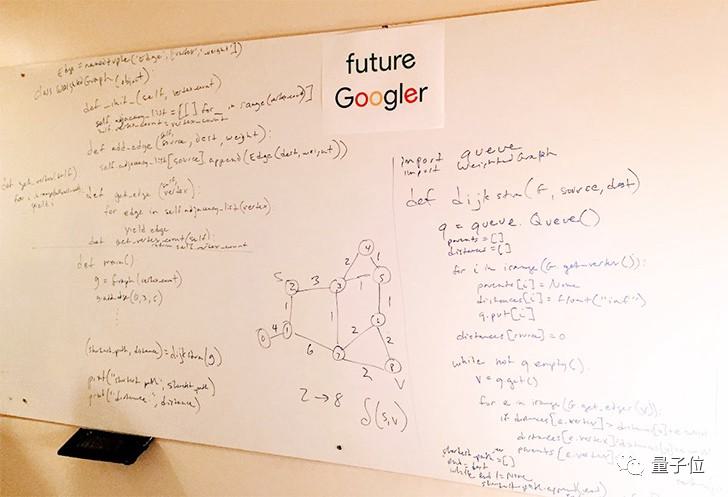 future
Googler
Edge = namedtuple('Edge', ['vertex', 'weight'])
class WeightedGraph(object):
def __init__(self, vertex_count)
self.adjacency_list = [[] for _ in range(vertex_count)]
self.vertex_count = vertex_count
def add_edge(self, source, dest, weight):
self.adjacency_list[source].append(Edge(dest, weight))
def get_vertex(self)
for i in
yield i
def get_edge(self, vertex):
for edge in self.adjacency_list(vertex)
yield edge
def get_vertex_count(self):
return self.vertex_count
def main()
g =
(shortest_path, distance) = dijkstra(g)
print("shortest path", shortest_path)
print("distance", distance)
S
2
3
3
2
4
1
1
5
1
1
1
0
4
1
6
7
2
2
2
8
V
2 → 8
δ(s,v)
import queue
import WeightedGraph
def dijkstra(G, source, dest)
q = queue.Queue()
parents = []
distances = []
for i in irange(G.get_vertex()):
parents[i] = None
distances[i] = float("inf")
q.put[i]
distances[source] = 0
while not q.empty():
v = q.get()
for e in irange(G.get_edges(v)):
if distances[e.vertex] >
distances[e.vertex]
parents[e.vertex]
shortest_path = []
end = dest
while end != None
shortest_path.append(end)
量子位